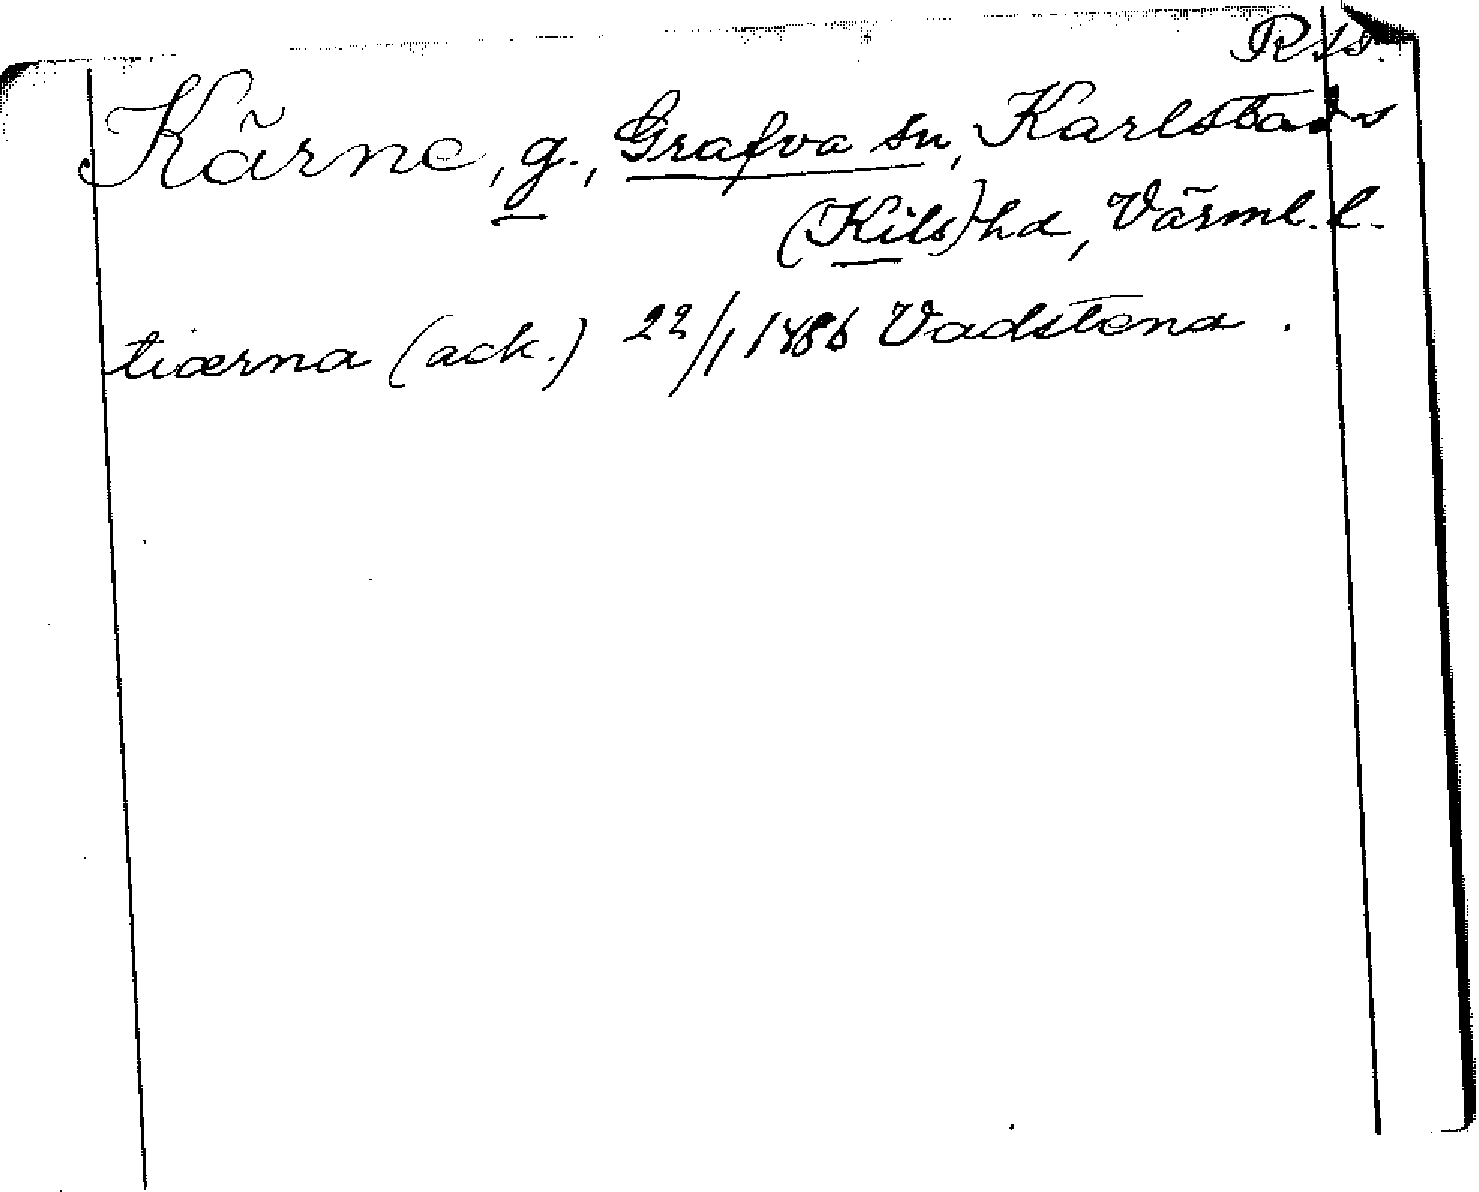 Rss.
Kärne, g., Grafva sn, Karlstads
(Kils) hd, Värml. l.
tiærna (ack.) 22/1 1486 Vadstena.